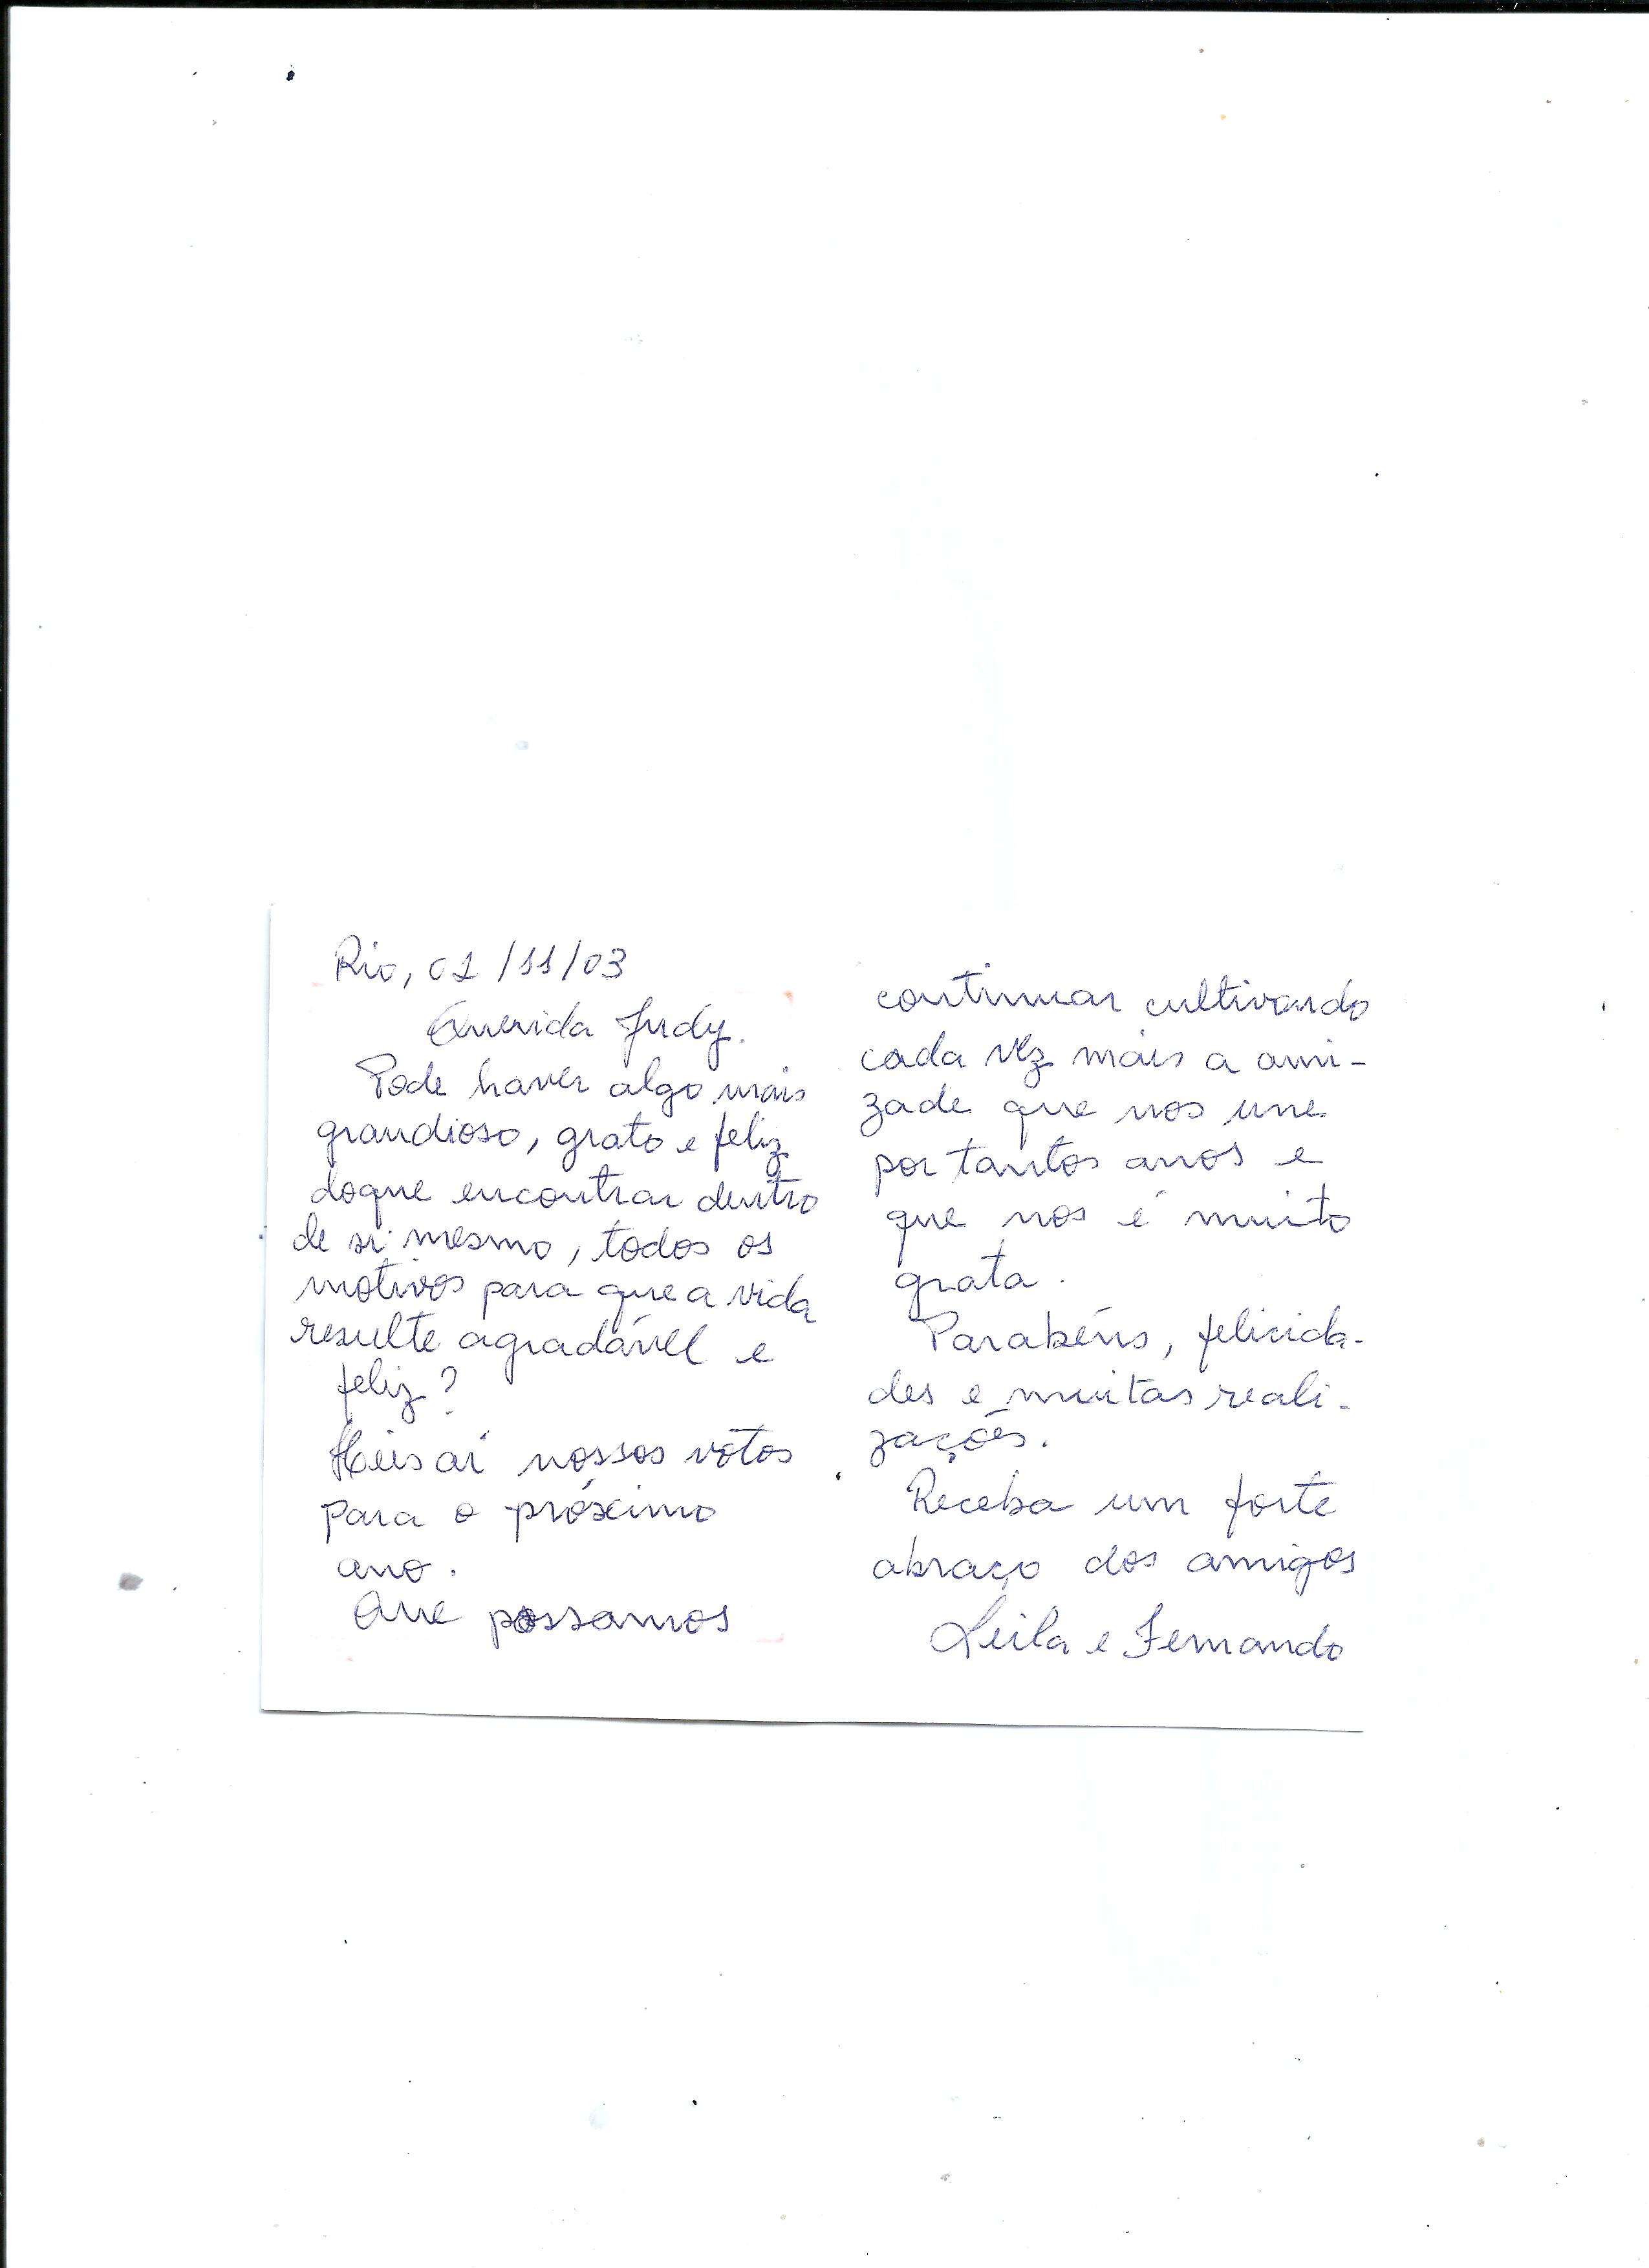 Rio, 01/11/03
Querida Judy.
Pode haver algo mais
grandioso, grato e feliz
doque encontrar dentro
de si mesmo, todos os
motivos para que a vida
resulte agradável e
feliz?
Heis aí nossos votos
para o próximo
ano.
Que possamos
continuar cultivando
cada vez mais a ami-
zade que nos une
por tantos anos e
que nos é muito
grata.
Parabéns, felicida-
des e muitas reali-
zações.
Receba um forte
abraço dos amigos
Leila e Fernando